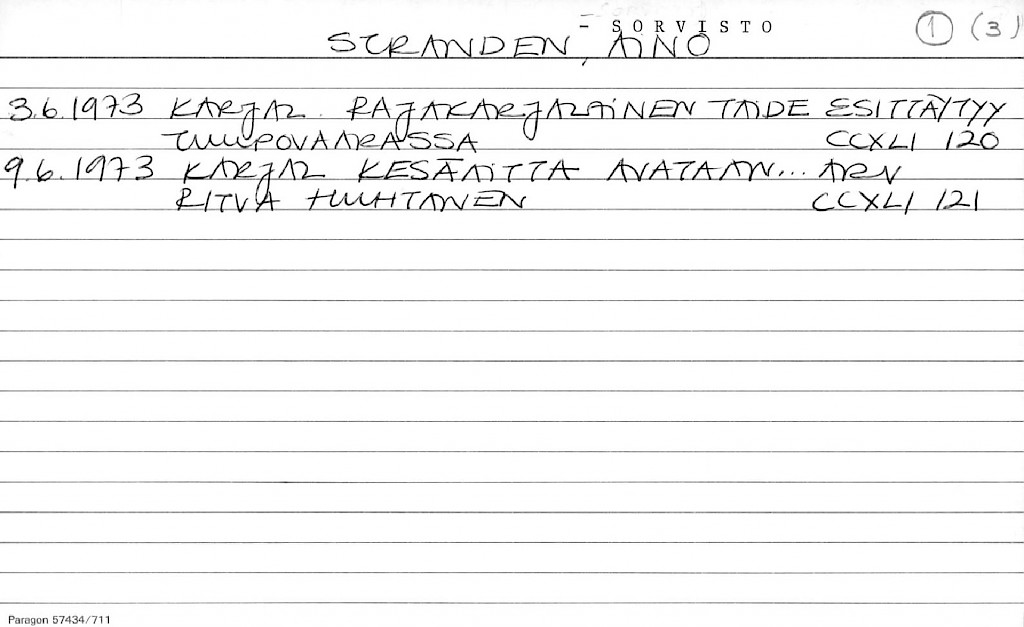 - SORVISTO
STRANDEN, AINO
1 (3)
3.6.1973 KARJAL. RAJAKARJALAINEN TAIDE ESITTÄYTYY
TUUPOVAARASSA CCXLI 120
9.6.1973 KARJAL KESÄAITTA AVATAAN... ARV
RITVA HUUHTANEN CCXLI 121
Paragon 57434/711